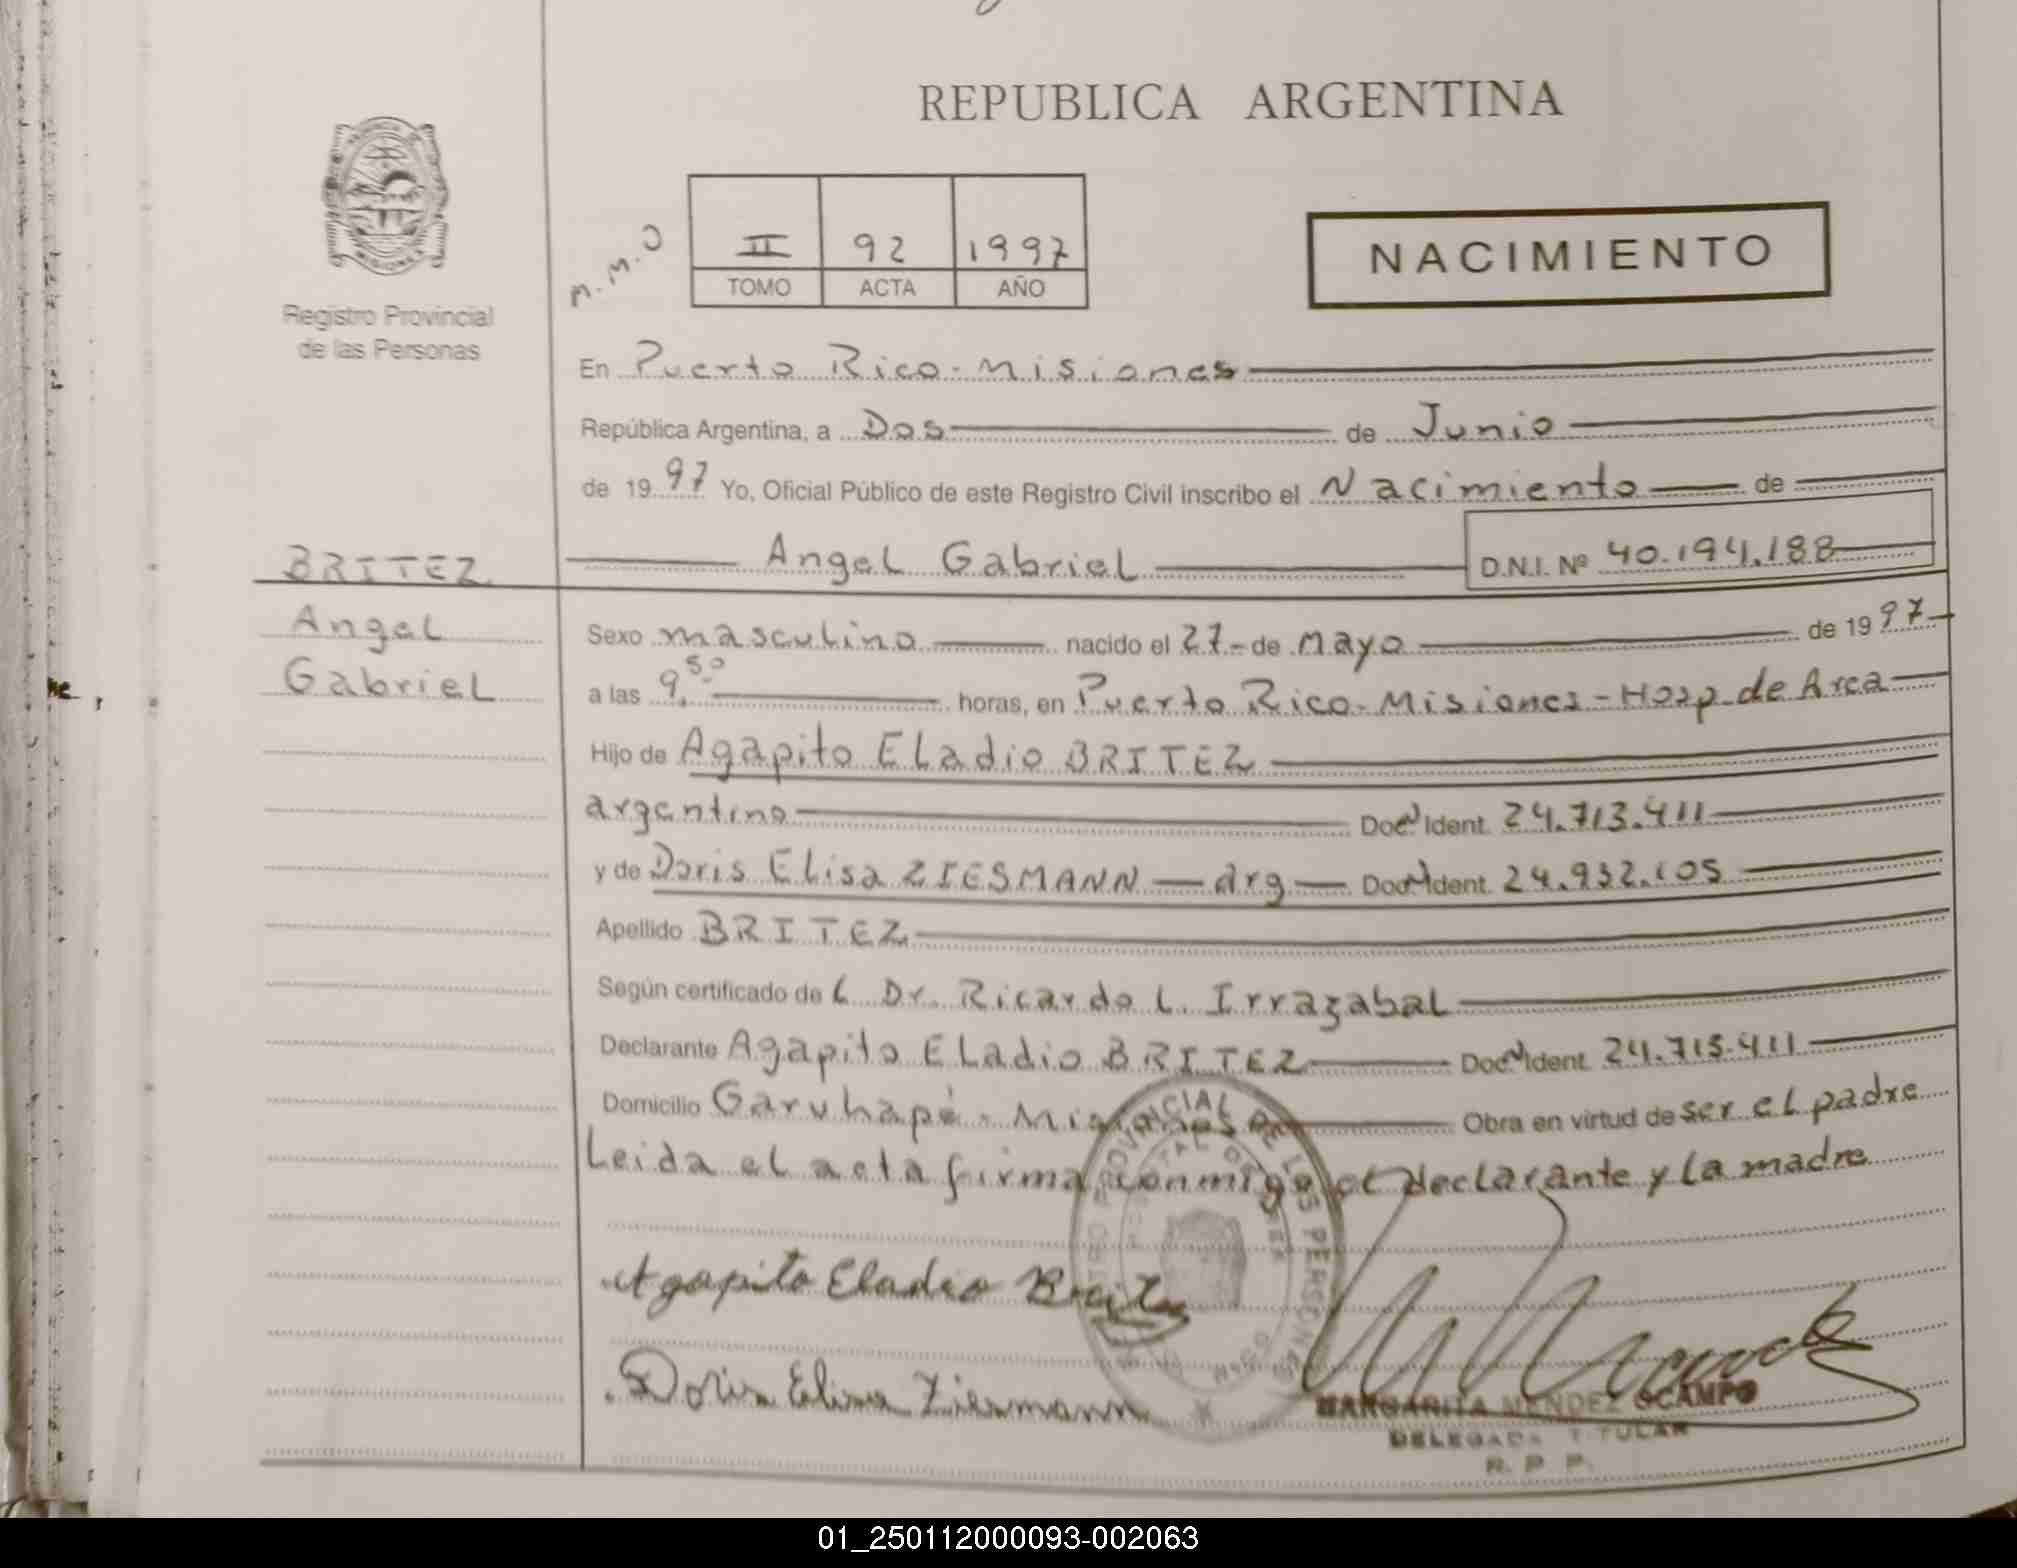 REPUBLICA ARGENTINA
Registro Provincial
de las Personas
M.M.O
II 92 1997
TOMO ACTA AÑO
NACIMIENTO
En Puerto Rico - Misiones
República Argentina, a Dos de Junio
de 1997 Yo, Oficial Público de este Registro Civil inscribo el Nacimiento de
BRITEZ Angel Gabriel D.N.I. Nº 40.194.188
Angel
Gabriel
Sexo masculino nacido el 27 - de Mayo de 1997
a las 9.50 horas, en Puerto Rico - Misiones - Hosp. de Area
Hijo de Agapito Eladio BRITEZ
argentino Doc. Ident. 24.713.411
y de Doris Elisa ZIESMANN - arg - Doc. Ident. 24.932.105
Apellido BRITEZ
Según certificado de L Dr. Ricardo L. Irrazabal
Declarante Agapito Eladio BRITEZ Doc. Ident. 24.713.411
Domicilio Garuhapé - Misiones Obra en virtud de ser el padre
Leida el acta firma conmigo el declarante y la madre
Agapito Eladio Britez
Doris Elisa Ziesmann
PROVINCIAL DE LAS PERSONAS
MARGARITA MENDEZ OCAMPO
DELEGADA TITULAR
R. P. P.
01_250112000093-002063